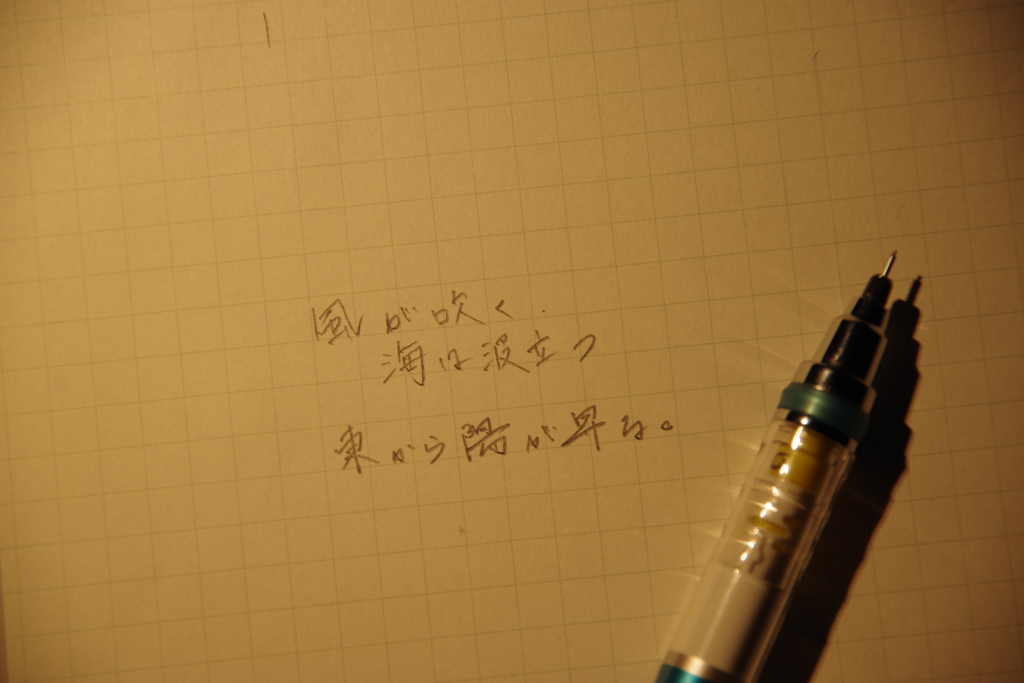 風が吹く.
海は波立つ
東から陽が昇る。